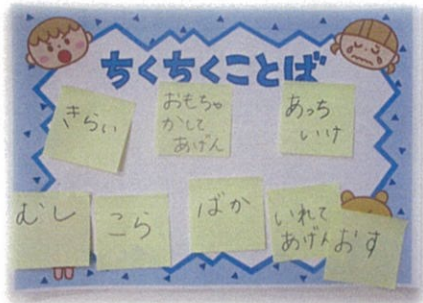 ちくちくことば
きらい
おもちゃ
かして
あげん
あっち
いけ
むし
こら
ばか
いれて
あげん
おす